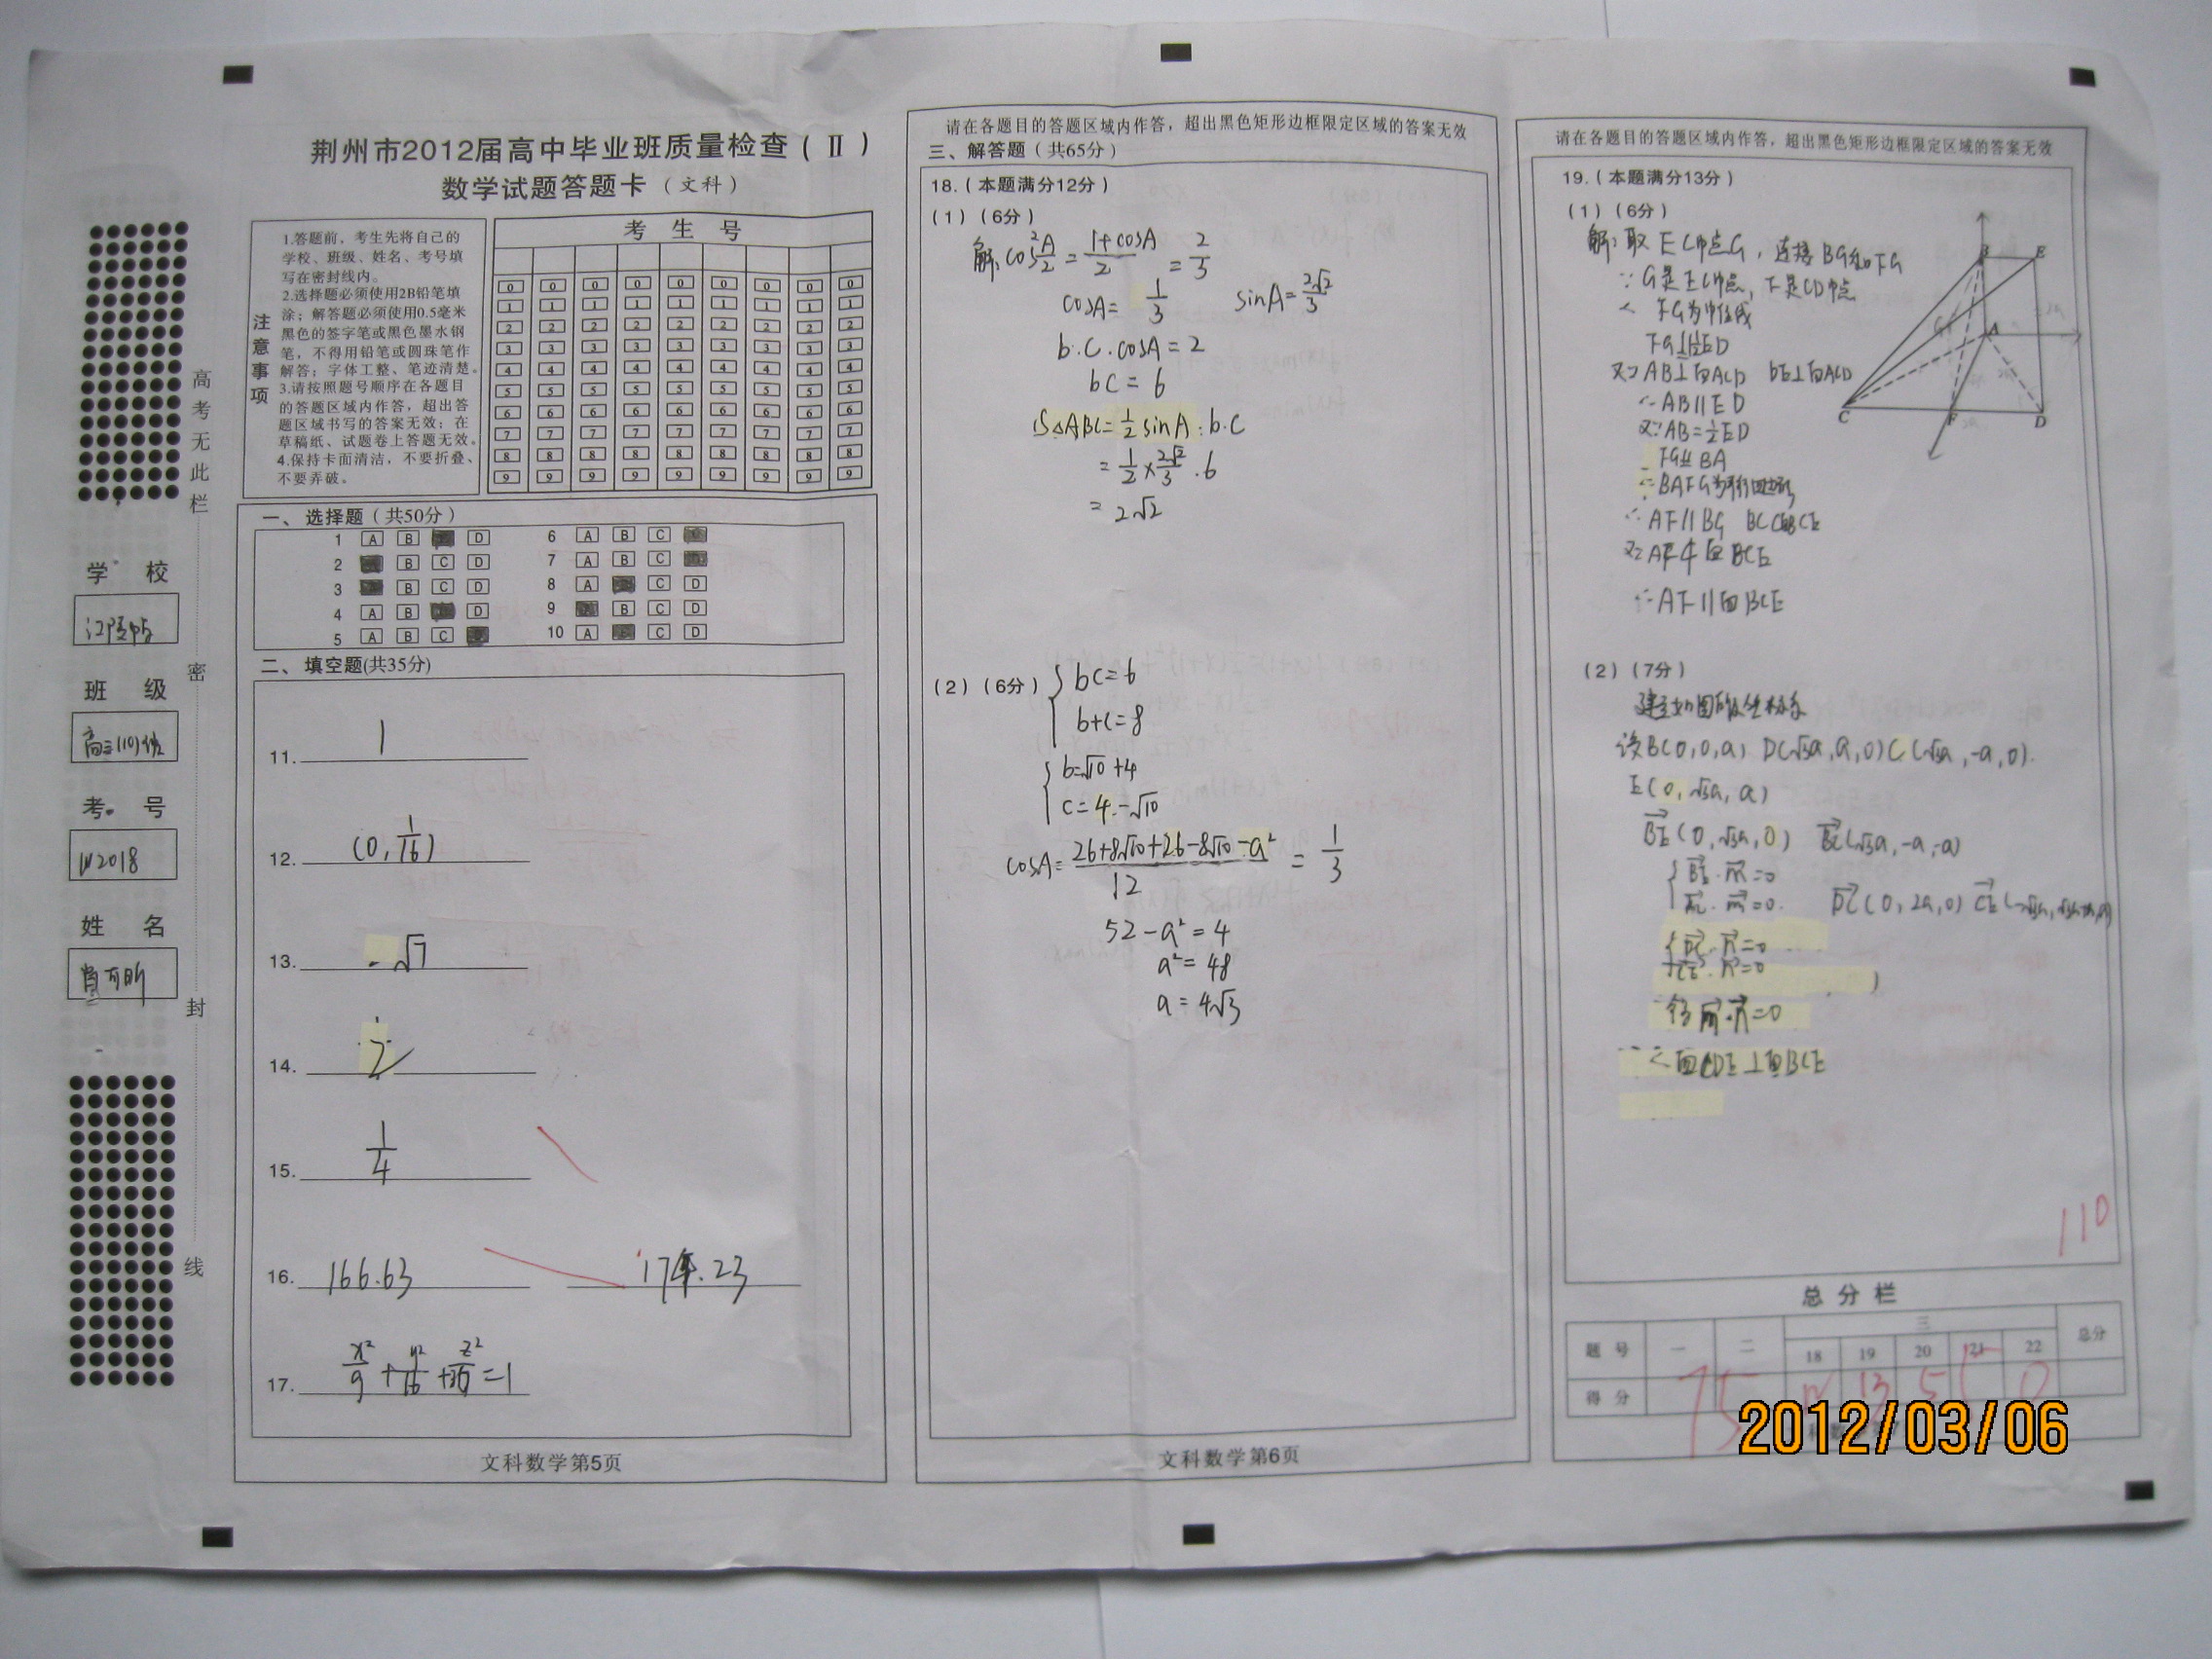 荆州市2012届高中毕业班质量检查(Ⅱ)
数学试题答题卡(文科)
注意事项
1.答题前，考生先将自己的
学校、班级、姓名、考号填
写在密封线内。
2.选择题必须使用2B铅笔填
涂；解答题必须使用0.5毫米
黑色的签字笔或黑色墨水钢
笔，不得用铅笔或圆珠笔作
解答；字体工整、笔迹清楚。
3.请按照题号顺序在各题目
的答题区域内作答，超出答
题区域书写的答案无效；在
草稿纸、试题卷上答题无效。
4.保持卡面清洁，不要折叠、
不要弄破。
考生号
0 0 0 0 0 0 0 0 0
1 1 1 1 1 1 1 1 1
2 2 2 2 2 2 2 2 2
3 3 3 3 3 3 3 3 3
4 4 4 4 4 4 4 4 4
5 5 5 5 5 5 5 5 5
6 6 6 6 6 6 6 6 6
7 7 7 7 7 7 7 7 7
8 8 8 8 8 8 8 8 8
9 9 9 9 9 9 9 9 9
高考无此栏
密
封
线
学校
班级
高三(10)班
考号
姓名
一、选择题(共50分)
1 A B D
2 B C D
3 B C D
4 A B D
5 A B C
6 A B C
7 A B C
8 A C D
9 B C D
10 A C D
二、填空题(共35分)
11. 1
12. (0, 1/16)
13. -√7
14. 2
15. 1/4
16. 166.63 174.23
17. x²/9 + y²/16 + z²/36 =1
文科数学第5页
请在各题目的答题区域内作答，超出黑色矩形边框限定区域的答案无效
三、解答题(共65分)
18.(本题满分12分)
(1)(6分)
解: cos²A/2 = (1+cosA)/2 = 2/3
cosA= 1/3 sinA= 2√2/3
b.c.cosA=2
bc=6
S△ABC=1/2 sinA·b·c
=1/2×2√2/3·6
=2√2
(2)(6分) bc=6
b+c=8
b=√10+4
c=4-√10
cosA= (26+8√10+26-8√10-a²)/12 = 1/3
52-a²=4
a²=48
a=4√3
文科数学第6页
请在各题目的答题区域内作答，超出黑色矩形边框限定区域的答案无效
19.(本题满分13分)
(1)(6分)
解:取EC中点G，连接BG和FG
∵G是EC中点，F是CD中点
∴FG为中位线
又∵AB⊥面ACD DE⊥面ACD
∴AB∥ED
又∵AB=1/2ED
∴BAFG为平行四边形
∴AF∥BG
又∵AF⊄面BCE
∴AF∥面BCE
B E
A
C F D
(2)(7分)
建立如图的坐标系
设B(0,0,a) D(√3a,a,0) C(√3a,-a,0).
E(0,√3a,a)
BE(0,√3a,0) BC(√3a,-a,-a)
BE·m=0
BC·m=0. DC(0,2a,0)
DC·n=0
CE·n=0
得m·n=0
∴面CDE⊥面BCE
110
总分栏
题号 一 二 三 总分
18 19 20 21 22
得分 75 12 13 5 5 0
2012/03/06